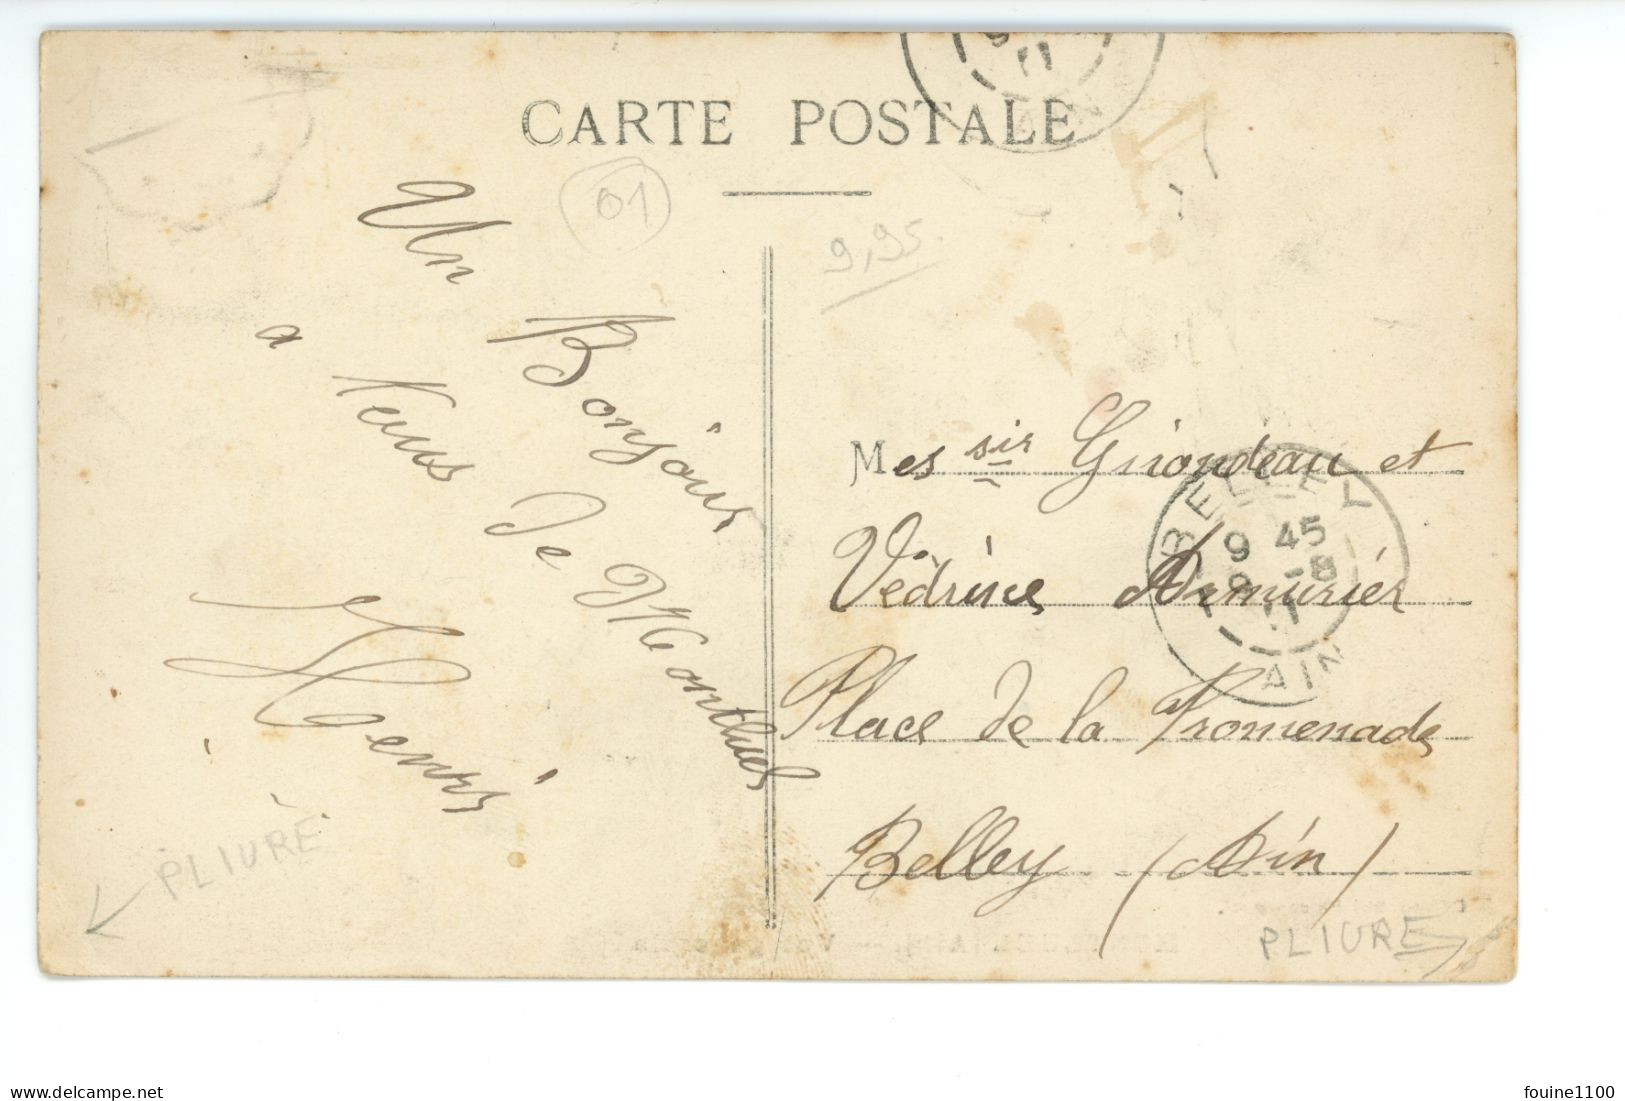 CARTE POSTALE
11
AIN
01
9,95
Un Bonjour
a Vous de Montluel
Henri
PLIURE
Messir Girondeau et
Védrine Armurier
Place de la Promenade
Belley (Ain)
BELLEY
9 45
9 -8
11
AIN
PLIURE
delcampe.net
fouine1100